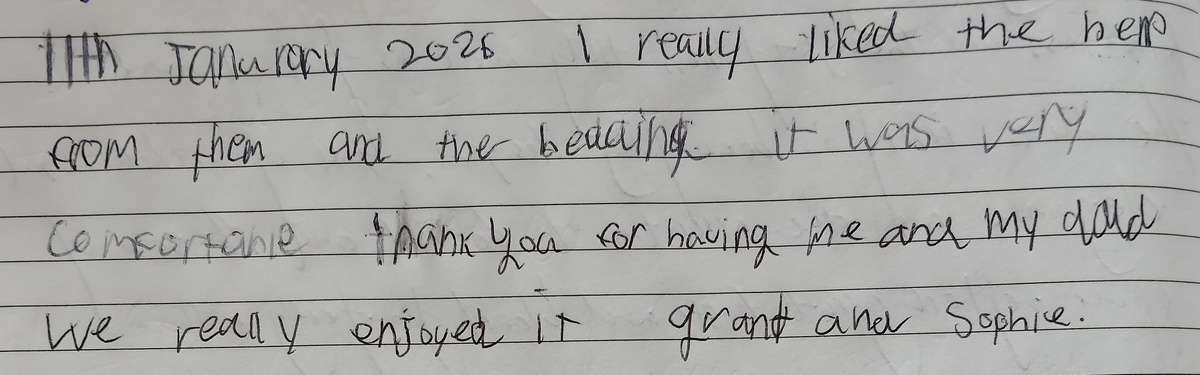 11th Janurary 2026 I really liked the help
from them and the bedding it was very
Comfortable thank you for having me and my dad
We really enjoyed it grant and Sophie.